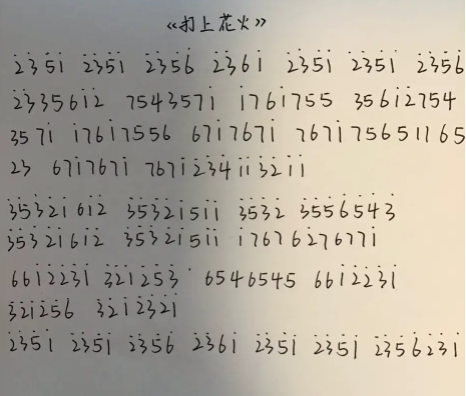 《打上花火》
2̇3̇5̇i 2̇3̇5̇i 2̇3̇5̇6̇ 2̇3̇6̇i 2̇3̇5̇i 2̇3̇5̇i 2̇3̇5̇6̇
2̇3̇35612̇ 7543571̇ 1̇761̇755 3561̇2754
3571̇ 1̇761̇7556 671̇7671̇ 7671̇75651165
23 671̇7671̇ 7671̇2̇3̇4̇1̇1̇3̇2̇1̇1̇
3̇5̇3̇2̇1̇61̇2̇ 3̇5̇3̇2̇1̇51̇1̇ 3̇5̇3̇2̇ 3̇5̇5̇6̇5̇4̇3̇
3̇5̇3̇2̇1̇61̇2̇ 3̇5̇3̇2̇1̇51̇1̇ 1̇76762̇76771̇
661̇2̇2̇3̇1̇ 3̇2̇1̇2̇5̇3̇ 6546545 661̇2̇2̇3̇1̇
3̇2̇1̇2̇5̇6̇ 3̇2̇1̇2̇3̇2̇1̇
2̇3̇5̇1̇ 2̇3̇5̇1̇ 2̇3̇5̇6̇ 2̇3̇6̇1̇ 2̇3̇5̇1̇ 2̇3̇5̇1̇ 2̇3̇5̇6̇2̇3̇1̇